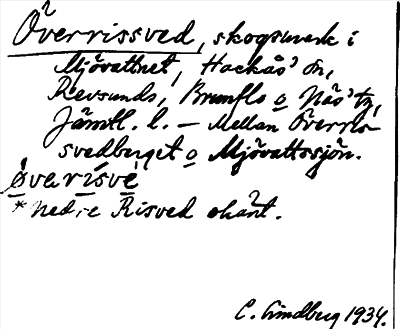 Överrissved, skogsmark i
Mjövattnet, Hackås' sn,
Revsunds, Brunflo o Näs' tg,
Jämtl. l. – Mellan Överris-
svedberget o Mjövattssjön.
øverisve
* Nedre Risved okänt.
C. Lindberg 1934.